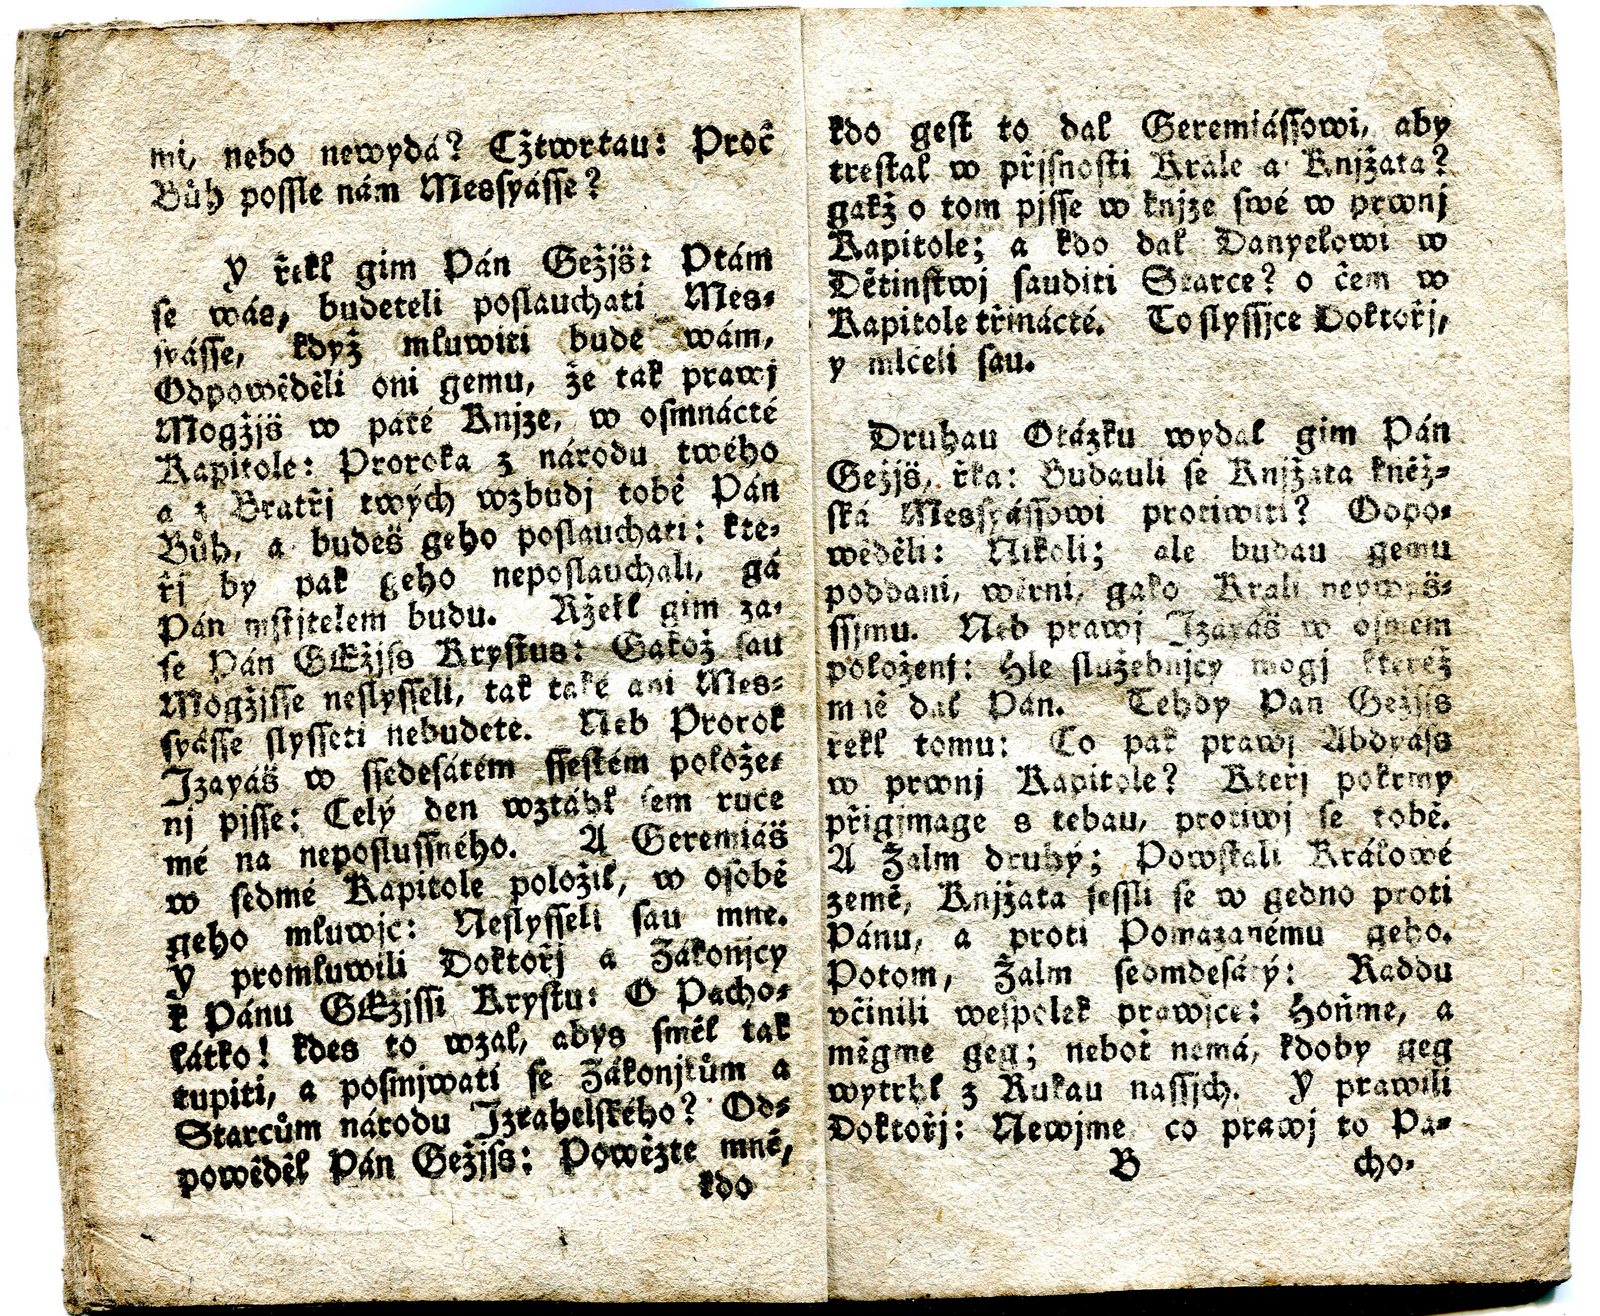 mi, nebo newydá? Cžtwrtau: Proč
Bůh possle nám Messyásse?
Y řekl gim Pán Gežjš: Ptám
se wás, budeteli poslauchati Mes-
syásse, když mluwiti bude wám,
Odpowěděli oni gemu, že tak prawj
Mogžjš w páté Knjze, w osmnácté
Kapitole: Proroka z národu twého
a z Bratřj twých wzbudj tobě Pán
Bůh, a budeš geho poslauchati: kte-
řj by pak geho neposlauchali, gá
Pán mstjtelem budu. Ržekl gim za-
se Pán GEžjss Krystus: Gakož sau
Mogžjsse neslysseli, tak také ani Mes-
syásse slysseti nebudete. Neb Prorok
Izayáš w ssedesátém ssestém polože-
nj pjsse: Celý den wztáhl sem ruce
mé na neposlussného. A Geremiáš
w sedmé Kapitole položil, w osobě
geho mluwjc: Neslysseli sau mne.
Y promluwili Doktořj a Zákonjcy
k Pánu GEžjssi Krystu: O Pacho-
látko! kdes to wzal, abys směl tak
tupiti, a posmjwati se Zákonjkům a
Starcům národu Izrahelského? Od-
powěděl Pán Gežjss: Powězte mně,
kdo
kdo gest to dal Geremiássowi, aby
trestal w přjsnosti Krále a Knjžata?
gakž o tom pjsse w knjze swé w prwnj
Kapitole; a kdo dal Danyelowi w
Dětinstwj sauditi Starce? o čem w
Kapitole třinácté. To slyssjce Doktořj,
y mlčeli sau.
Druhau Otázku wydal gim Pán
Gežjš, řka: Budauli se Knjžata kněž-
ská Messyássowi protiwiti? Odpo-
wěděli: Nikoli; ale budau gemu
poddani, wěrni, gako Krali neywyš-
ssjmu. Neb prawj Izayáš w osmém
položenj: Hle služebnjcy mogj kteréž
mně dal Pán. Tehdy Pan Gežjss
řekl tomu: Co pak prawj Abdyáss
w prwnj Kapitole? Kteřj pokrmy
přigjmage s tebau, protiwj se tobě.
A Žalm druhý; Powstali Králowé
země, Knjžata sessli se w gedno proti
Pánu, a proti Pomazanému geho.
Potom, Žalm sedmdesátý: Raddu
včinili wespolek prawjce: Hoňme, a
měgme geg; neboť nemá, kdoby geg
wytrhl z Rukau nassjch. Y prawili
Doktořj: Newjme co prawj to Pa-
B cho-